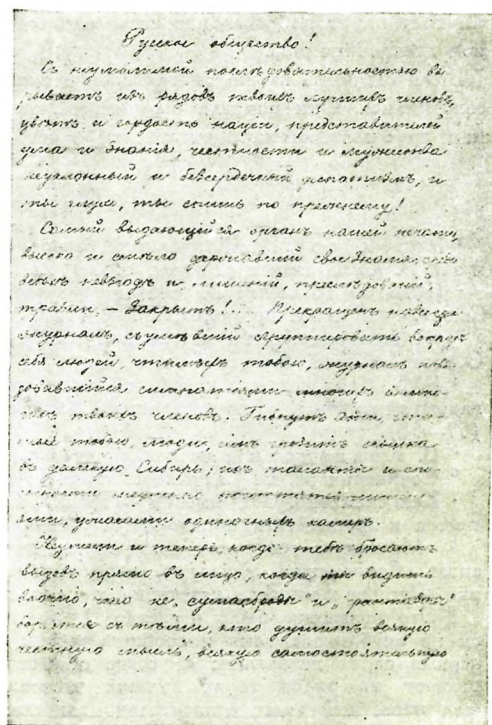 Русское общество!
Съ неумолимой послѣдовательностью вы
рываетъ изъ рядовъ твоихъ лучшихъ членовъ,
цвѣтъ и гордость націи, представителей
ума и знанія, честности и мужества
неуклонный и безсердечный деспотизмъ, и
ты глухо, ты спишь по прежнему!
Самый выдающійся органъ нашей печати,
высоко и смѣло державшій свое знамя, среди
невзгодъ и лишеній, преслѣдованій,
травли, — Закрытъ!... Прекращенъ навсегда
журналъ, съумѣвшій группировать вокругъ
себя людей, чтимыхъ тобою, журналъ поль
зовавшійся симпатіями многихъ и мно
гихъ твоихъ членовъ. Гибнутъ эти,
тобою, люди, имъ грозитъ ссылка
въ далекую Сибирь; ихъ таланты и спо
собности медленно
одиночныхъ камеръ.
Неужели и теперь, когда тебѣ бросаютъ
вызовъ прямо въ лицо, когда ты видишь
воочію, что не „сумасброды" и „фантазеры"
борятся съ тѣми, кто душитъ всякую
честную мысль, всякую самостоятельную